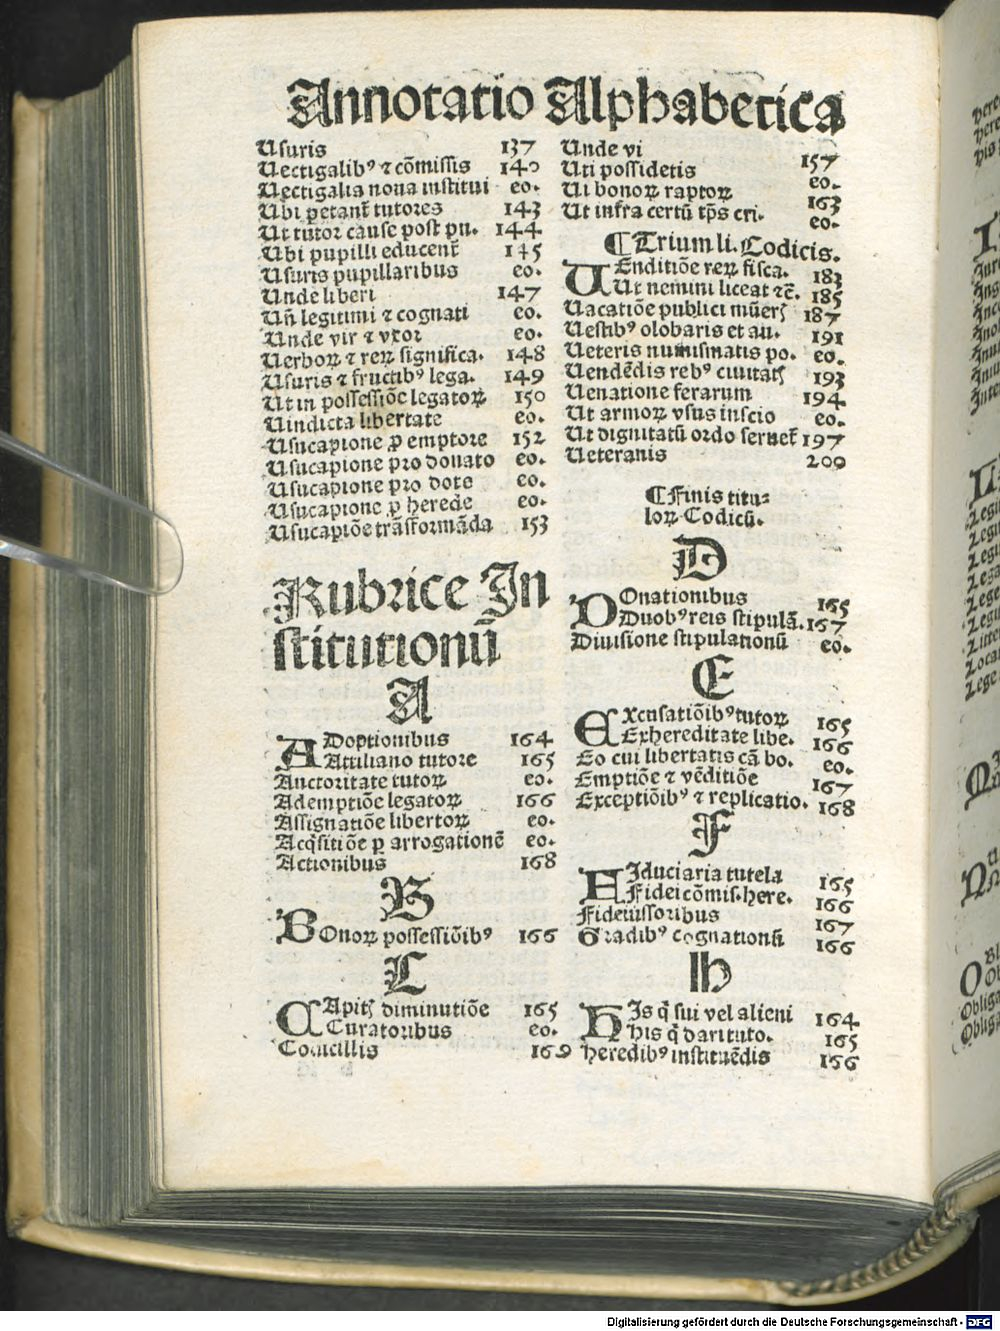 Annotatio Alphabetica
Usuris 137
Uectigalibꝰ ⁊ cõmissis 140
Uectigalia noua institui eo.
Ubi petant̃ tutores 143
Ut tutor cause post pu. 144
Ubi pupilli educent̃ 145
Usuris pupillaribus eo.
Unde liberi 147
Uñ legitimi ⁊ cognati eo.
Unde vir ⁊ vxor eo.
Uerboꝝ ⁊ reꝝ significa. 148
Usuris ⁊ fructibꝰ lega. 149
Ut in possessiõe legatoꝝ 150
Uindicta libertate eo.
Usucapione ꝓ emptore 152
Usucapione pro donato eo.
Usucapione pro dote eo.
Usucapione ꝓ herede eo.
Usucapiõe trãsformãda 153
Rubrice In
stitutionũ
A
ADoptionibus 164
Attiliano tutore 165
Auctoritate tutoꝝ eo.
Ademptiõe legatoꝝ 166
Assignatiõe libertoꝝ eo.
Acq̃sitiõe ꝑ arrogationẽ eo.
Actionibus 168
B
BOnoꝝ possessiõibꝰ 166
C
CApitꝭ diminutiõe 165
Curatoribus eo.
Codicillis 169
Unde vi 157
Uti possidetis eo.
Ui bonoꝝ raptoꝝ 163
Ut infra certũ tp̃s cri. eo.
¶ Trium li. Codicis.
UEnditiõe reꝝ fisca. 183
Ut nemini liceat ⁊c̃. 185
Uacatiõe publici mũerꝭ 187
Uestibꝰ olobaris et au. 191
Ueteris numismatis po. eo.
Uendẽdis rebꝰ ciuitatꝭ 193
Uenatione ferarum 194
Ut armoꝝ vsus inscio eo.
Ut dignitatũ ordo seruet̃ 197
Ueteranis 200
¶ Finis titu⸗
loꝝ Codicũ.
D
DOnationibus 165
Duobꝰ reis stipulã. 167
Diuisione stipulationũ eo.
E
EXcusatiõibꝰ tutoꝝ 165
Exhereditate libe. 166
Eo cui libertatis cã bo. eo.
Emptiõe ⁊ vẽditiõe 167
Exceptiõibꝰ ⁊ replicatio. 168
F
FIduciaria tutela 165
Fideicõmis. here. 166
Fideiussoribus 167
Gradibꝰ cognationũ 166
H
HIs q̃ sui vel alieni 164
His q̃ dari tuto. 165
Heredibꝰ instituẽdis 166
Digitalisierung gefördert durch die Deutsche Forschungsgemeinschaft - DFG